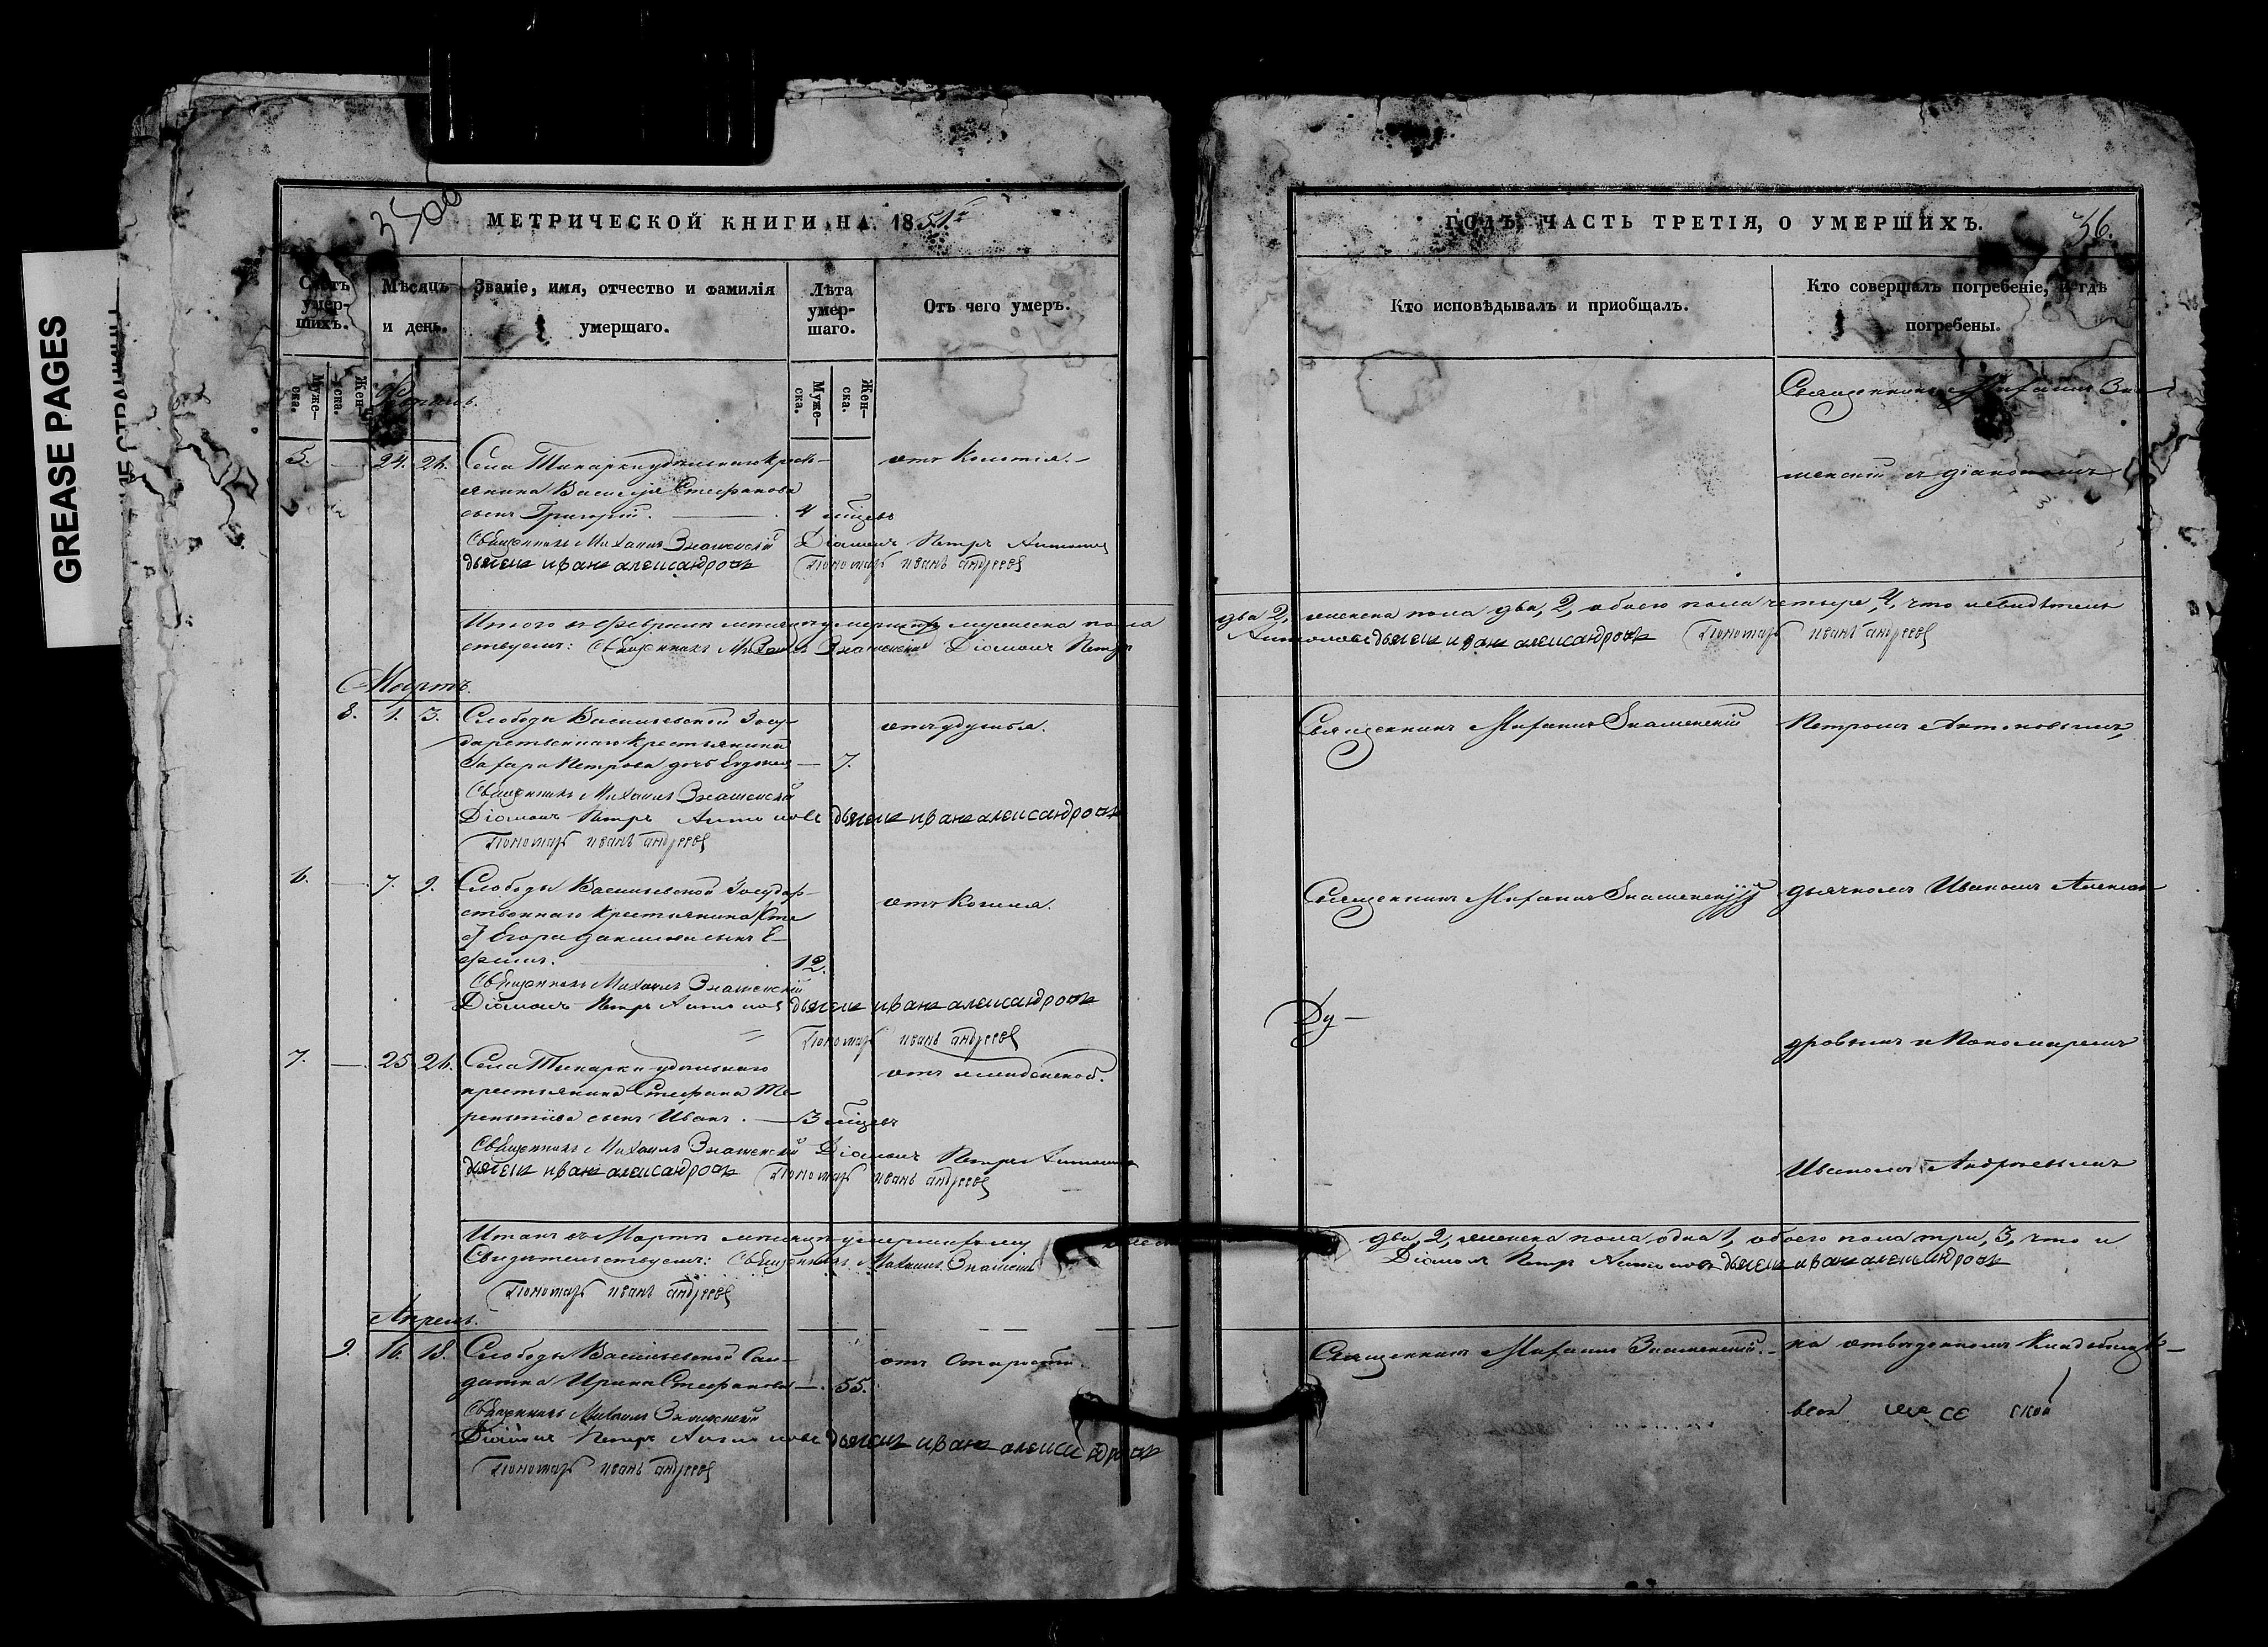 GREASE PAGES
3500
МЕТРИЧЕСКОЙ КНИГИ НА 1851й
Счетъ умер-шихъ.
Мѣсяцъ и день.
Званіе, имя, отчество и фамилія умершаго.
Лѣта умер-шаго.
Отъ чего умеръ.
Муже-ска.
Жен-ска.
Муже-ска.
Жен-ска.
5. — 24. 26. Села Тикарки удѣльнаго крестъ-
янина Василія Стефанова
сынъ Григорій. — 4 мѣсцевъ
Священникъ Михаилъ Знаменскій Діаконъ Петръ Антоновъ
дьячекъ иванъ александровъ Пономарь иванъ андреевъ
Итого въ Февралѣ мѣсяцѣ умершихъ мужеска пола
ствуемъ: Священникъ Михаилъ Знаменскій Діаконъ Петръ
Мартъ.
8. 1. 3. Слободы Васильевской Госу-
дарственнаго крестьянина
Захара Петрова дочь Евдокія — 7.
отъ удушья.
Священникъ Михаилъ Знаменскій
Діаконъ Петръ Антоновъ дьячекъ иванъ александровъ
Пономарь иванъ андреевъ
6. — 7. 9. Слободы Васильевской Государ-
ственнаго крестьянина
Егора сынъ Е-
фимъ. 12.
отъ кашля.
Священникъ Михаилъ Знаменскій
Діаконъ Петръ Антоновъ дьячекъ иванъ александровъ
Пономарь иванъ андреевъ
7. — 25. 26. Села Тикарки удѣльнаго
крестьянина Стефана Те-
рентьева сынъ Иванъ. — 3 мѣсцевъ
отъ младенской.
Священникъ Михаилъ Знаменскій Діаконъ Петръ Антоновъ
дьячекъ иванъ александровъ Пономарь иванъ андреевъ
Итого въ Мартѣ мѣсяцѣ умершихъ
Свидетельствуемъ: Священникъ Михаилъ Знаменскій
Пономарь иванъ андреевъ
Апрель.
9. 16. 18. Слободы Васильевской Сол-
датка Ирина Стефанова — 55.
отъ Старости.
Священникъ Михаилъ Знаменскій
Діаконъ Петръ Антоновъ дьячекъ иванъ александровъ
Пономарь иванъ андреевъ
ГОДЪ, ЧАСТЬ ТРЕТІЯ, О УМЕРШИХЪ.
56.
Кто исповѣдывалъ и пріобщалъ.
Кто совершалъ погребеніе, и гдѣ погребены.
Священникъ Михаилъ Зна-
менскій съ діакономъ
два 2, женска пола два, 2, обоего пола четыре, 4, что и свидѣтель
Антоновъ дьячекъ иванъ александровъ Пономарь иванъ андреевъ
Священникъ Михаилъ Знаменскій
Петромъ Антоновымъ,
Священникъ Михаилъ Знаменскій
дьячкомъ Иваномъ Алексан-
Ду-
дровымъ и Пономаремъ
Иваномъ Андреевымъ
два, 2, женска пола одна 1, обоего пола три, 3, что и
Діаконъ Петръ Антоновъ дьячекъ иванъ александровъ
Священникъ Михаилъ Знаменскій.
на отведенномъ кладбищѣ